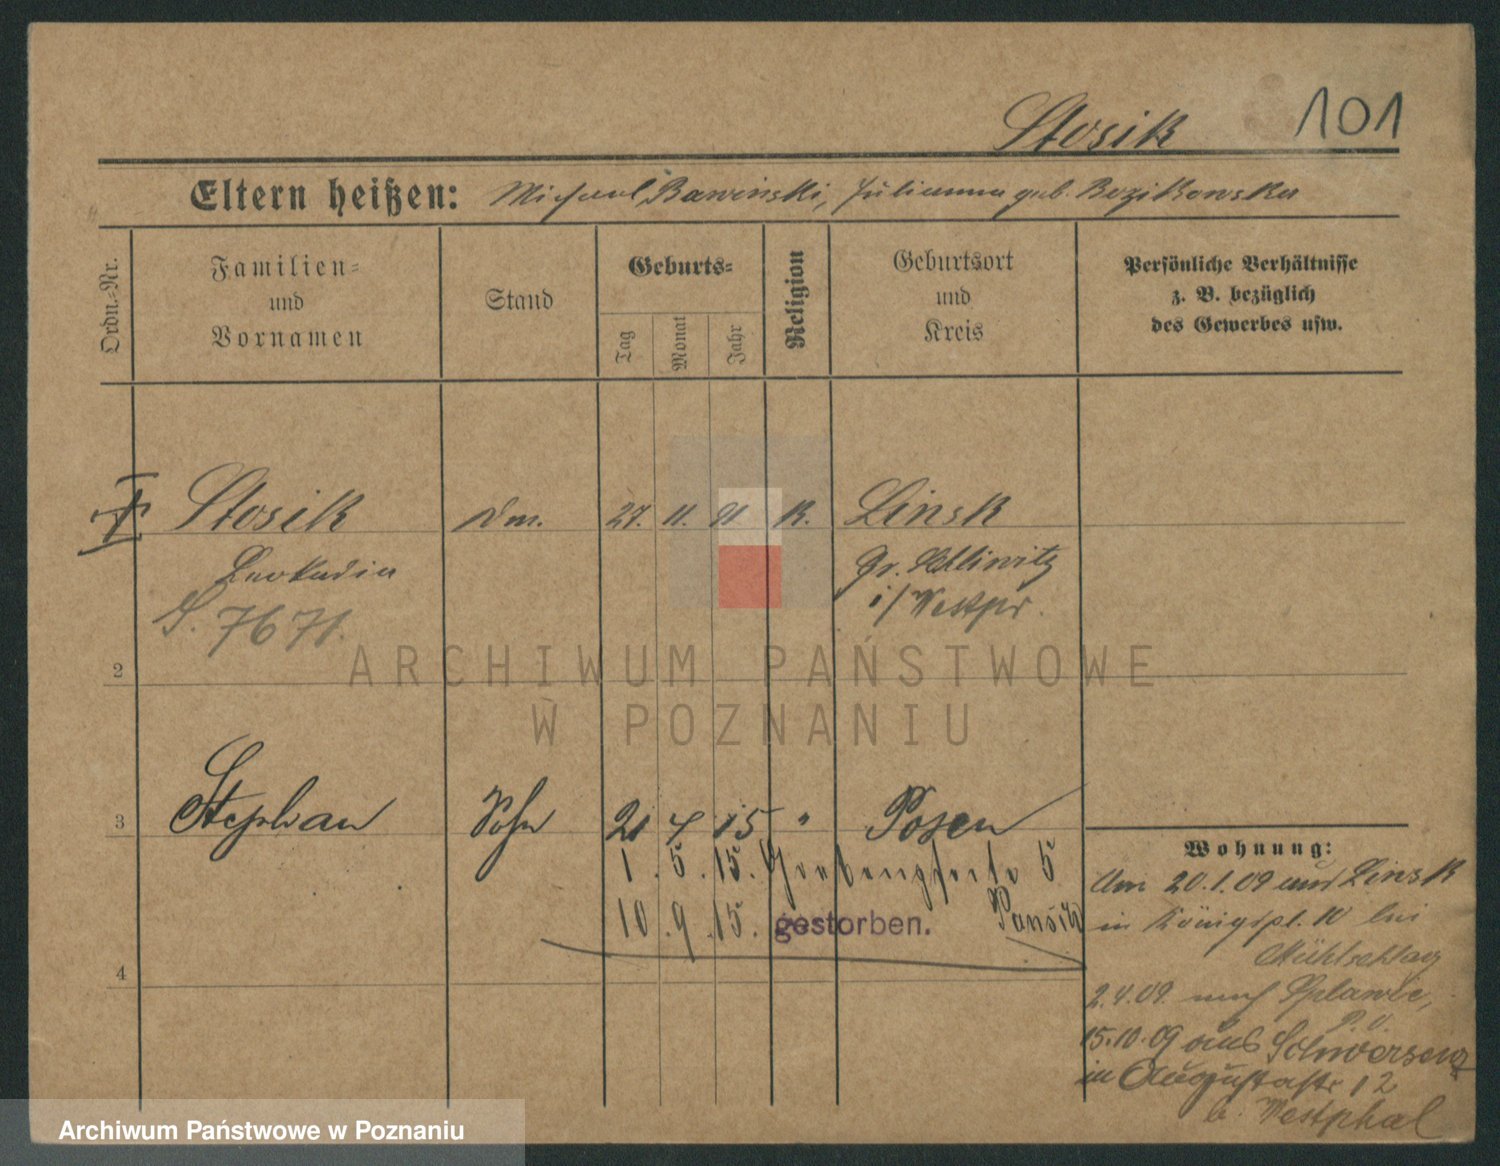 Stosik 101
Eltern heißen: Michael Bawinski, Julianna geb. Bozikowska
Ordn.-Nr.
Familien-
und
Vornamen
Stand
Geburts-
Tag
Monat
Jahr
Religion
Geburtsort
und
Kreis
Persönliche Verhältnisse
z. B. bezüglich
des Gewerbes usw.
Stosik Dm. 27. 11. 91 K. Linsk
Leokadia Gr. Schliwitz
S. 7671. i/Westpr.
2
ARCHIWUM PAŃSTWOWE
W POZNANIU
3 Stephan Sohn 21 4 15 " Posen
1. 5. 15. 5
10. 9. 15. gestorben.
4
Wohnung:
Am 20.1.09 aus Linsk
in Königspl. 10 bei
Mühlschlag
2.4.09. nach
15.10.09 aus Schwersenz
in Augustastr 12
b. Westphal
Archiwum Państwowe w Poznaniu